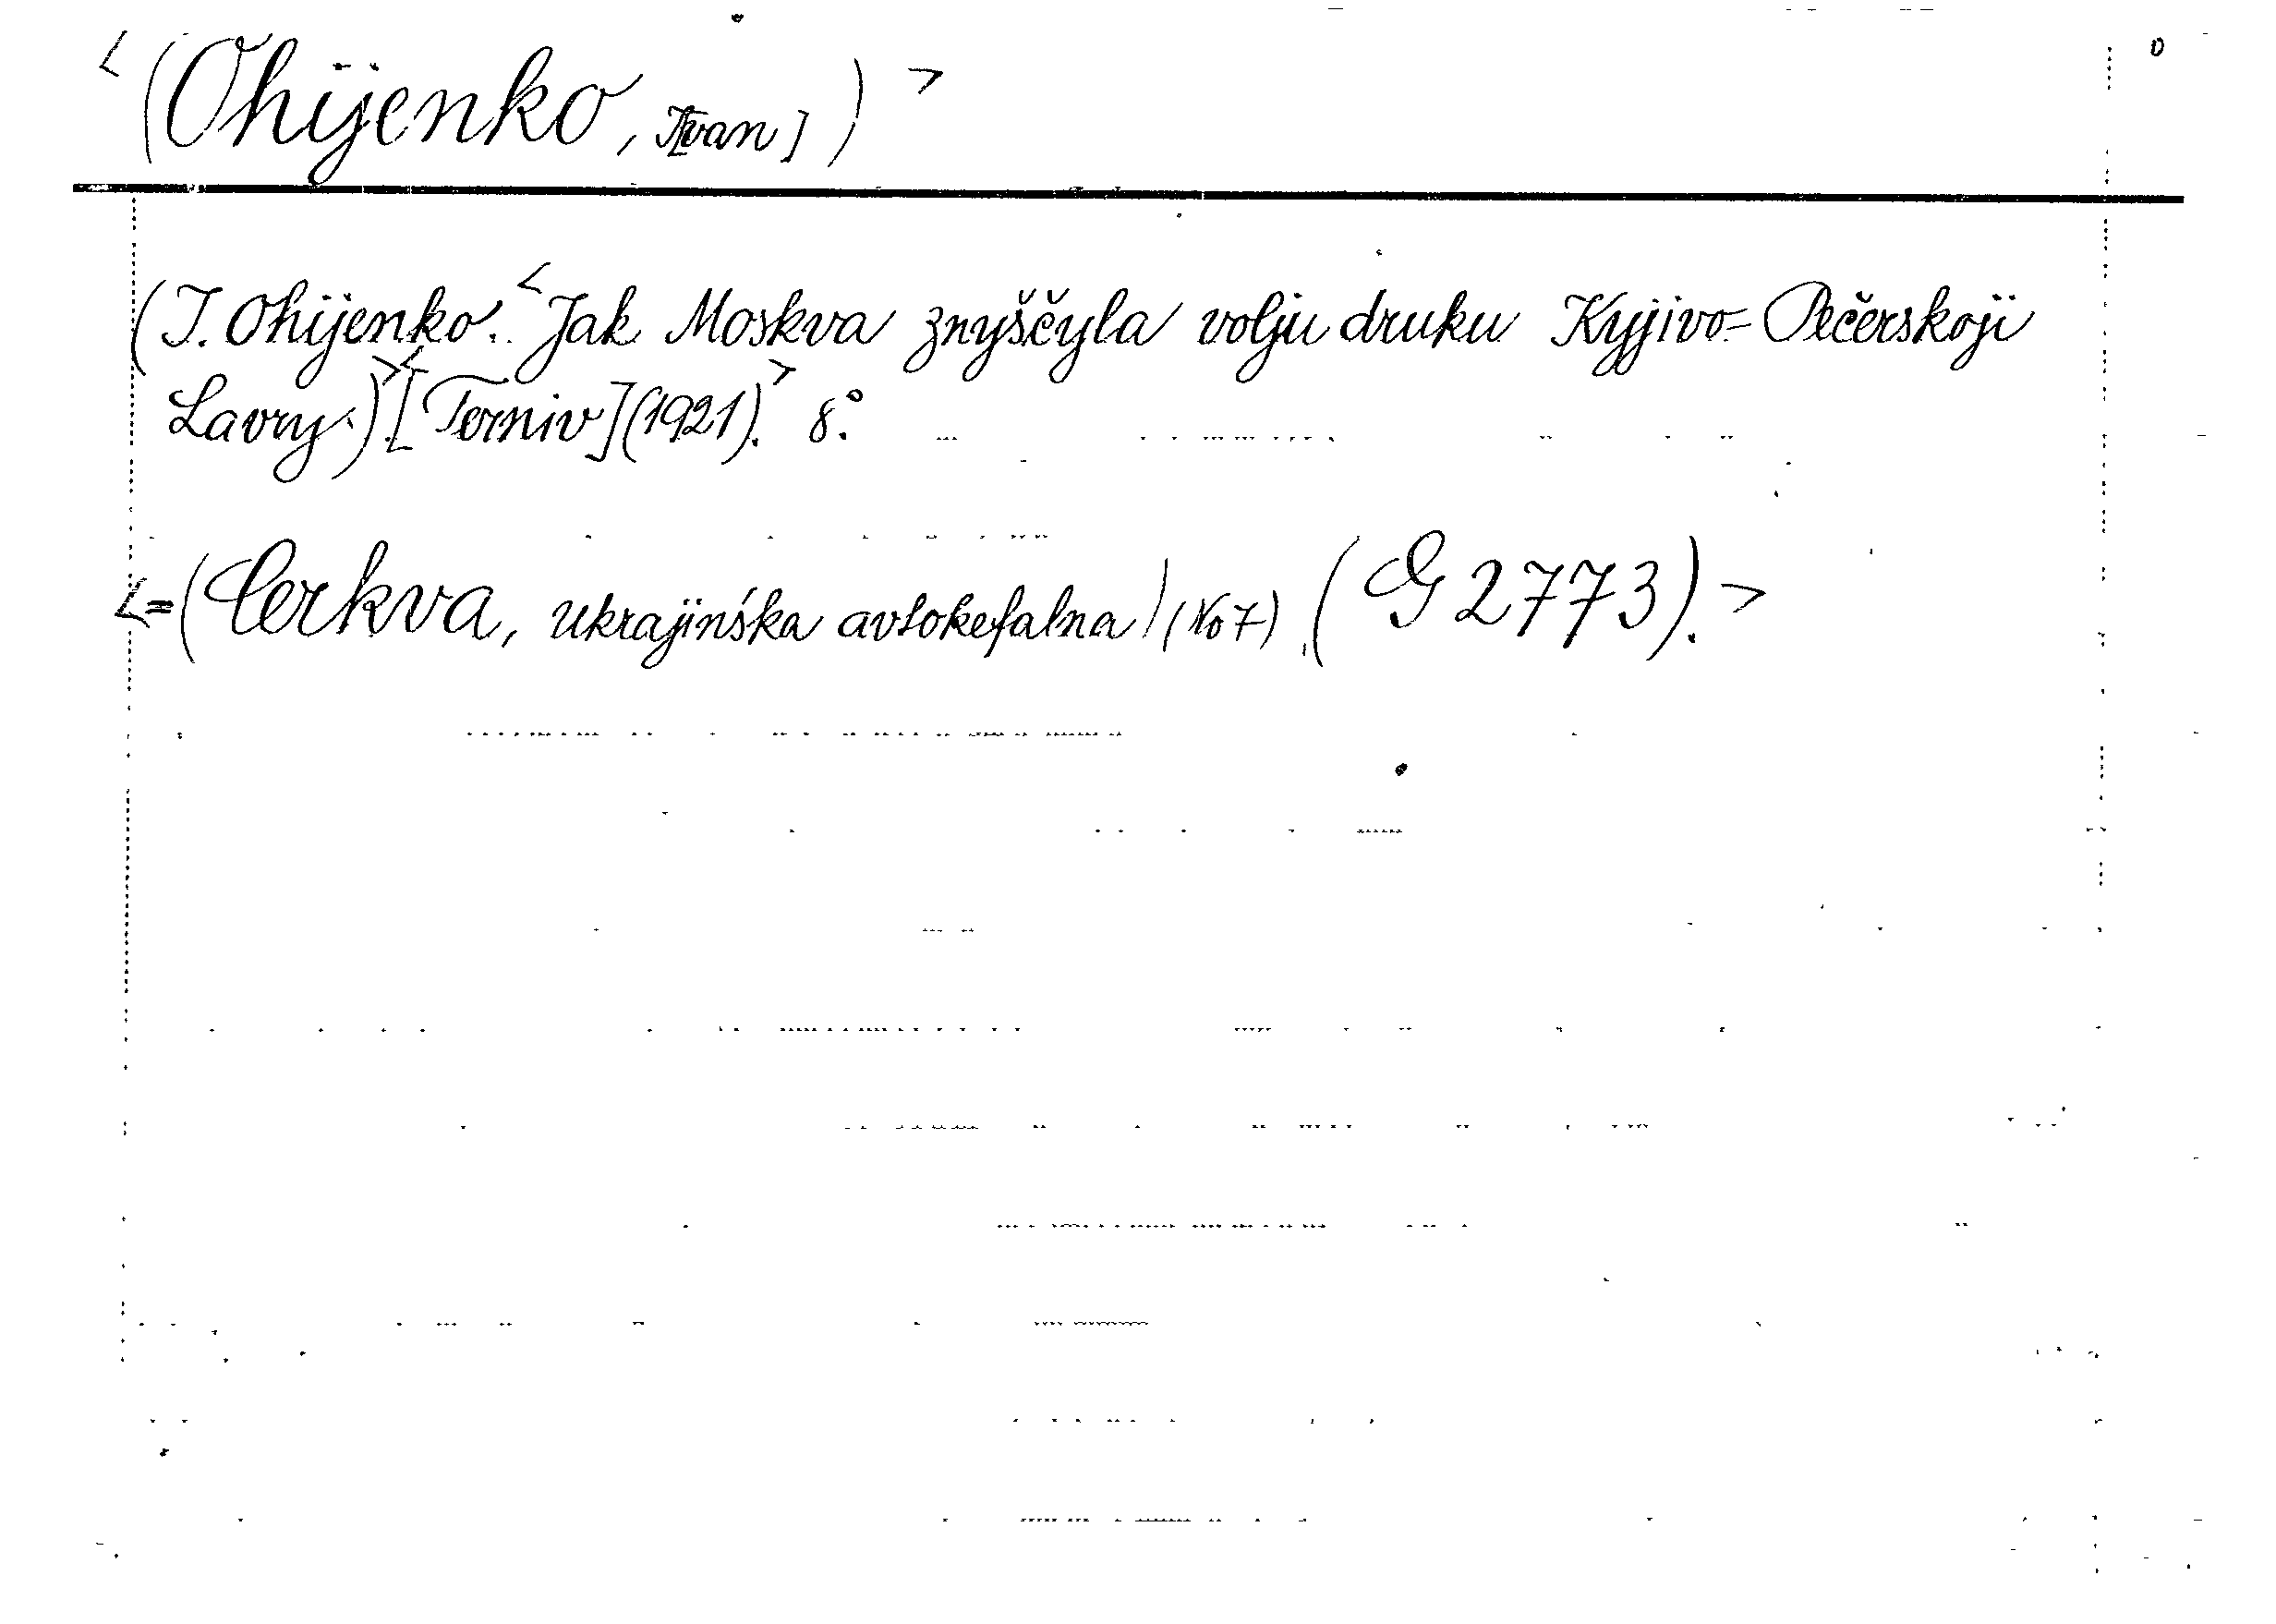 <(Ohijenko, I[van])>
0
(I. Ohijenko. <Jak Moskva znyščyla volju druku Kyjivo-Pečerskoji
Lavry.)> <[Tarniv](1921).> 8°.
<=(Cerkva, ukrajinśka avtokefalna) (No 7) (G 2773).>